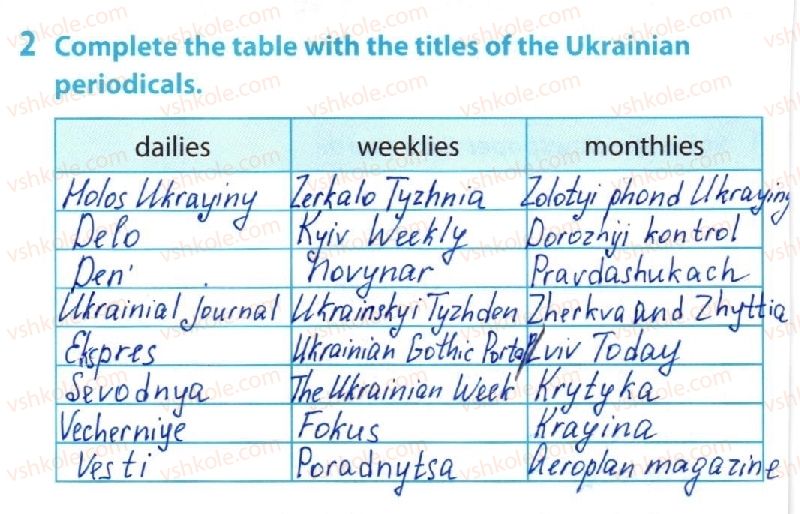 2 Complete the table with the titles of the Ukrainian
periodicals.
dailies weeklies monthlies
Holos Ukrayiny Zerkalo Tyzhnia Zolotyi phond Ukrayiny
Delo Kyiv Weekly Dorozhyi kontrol
Den' Novynar Pravdashukach
Ukrainial Journal Ukrainskyi Tyzhden Zherkva and Zhyttia
Ekspres Ukrainian Gothic Portal Lviv Today
Sevodnya The Ukrainian Week Krytyka
Vecherniye Fokus Krayina
Vesti Poradnytsa Aeroplan magazine
vshkole.com